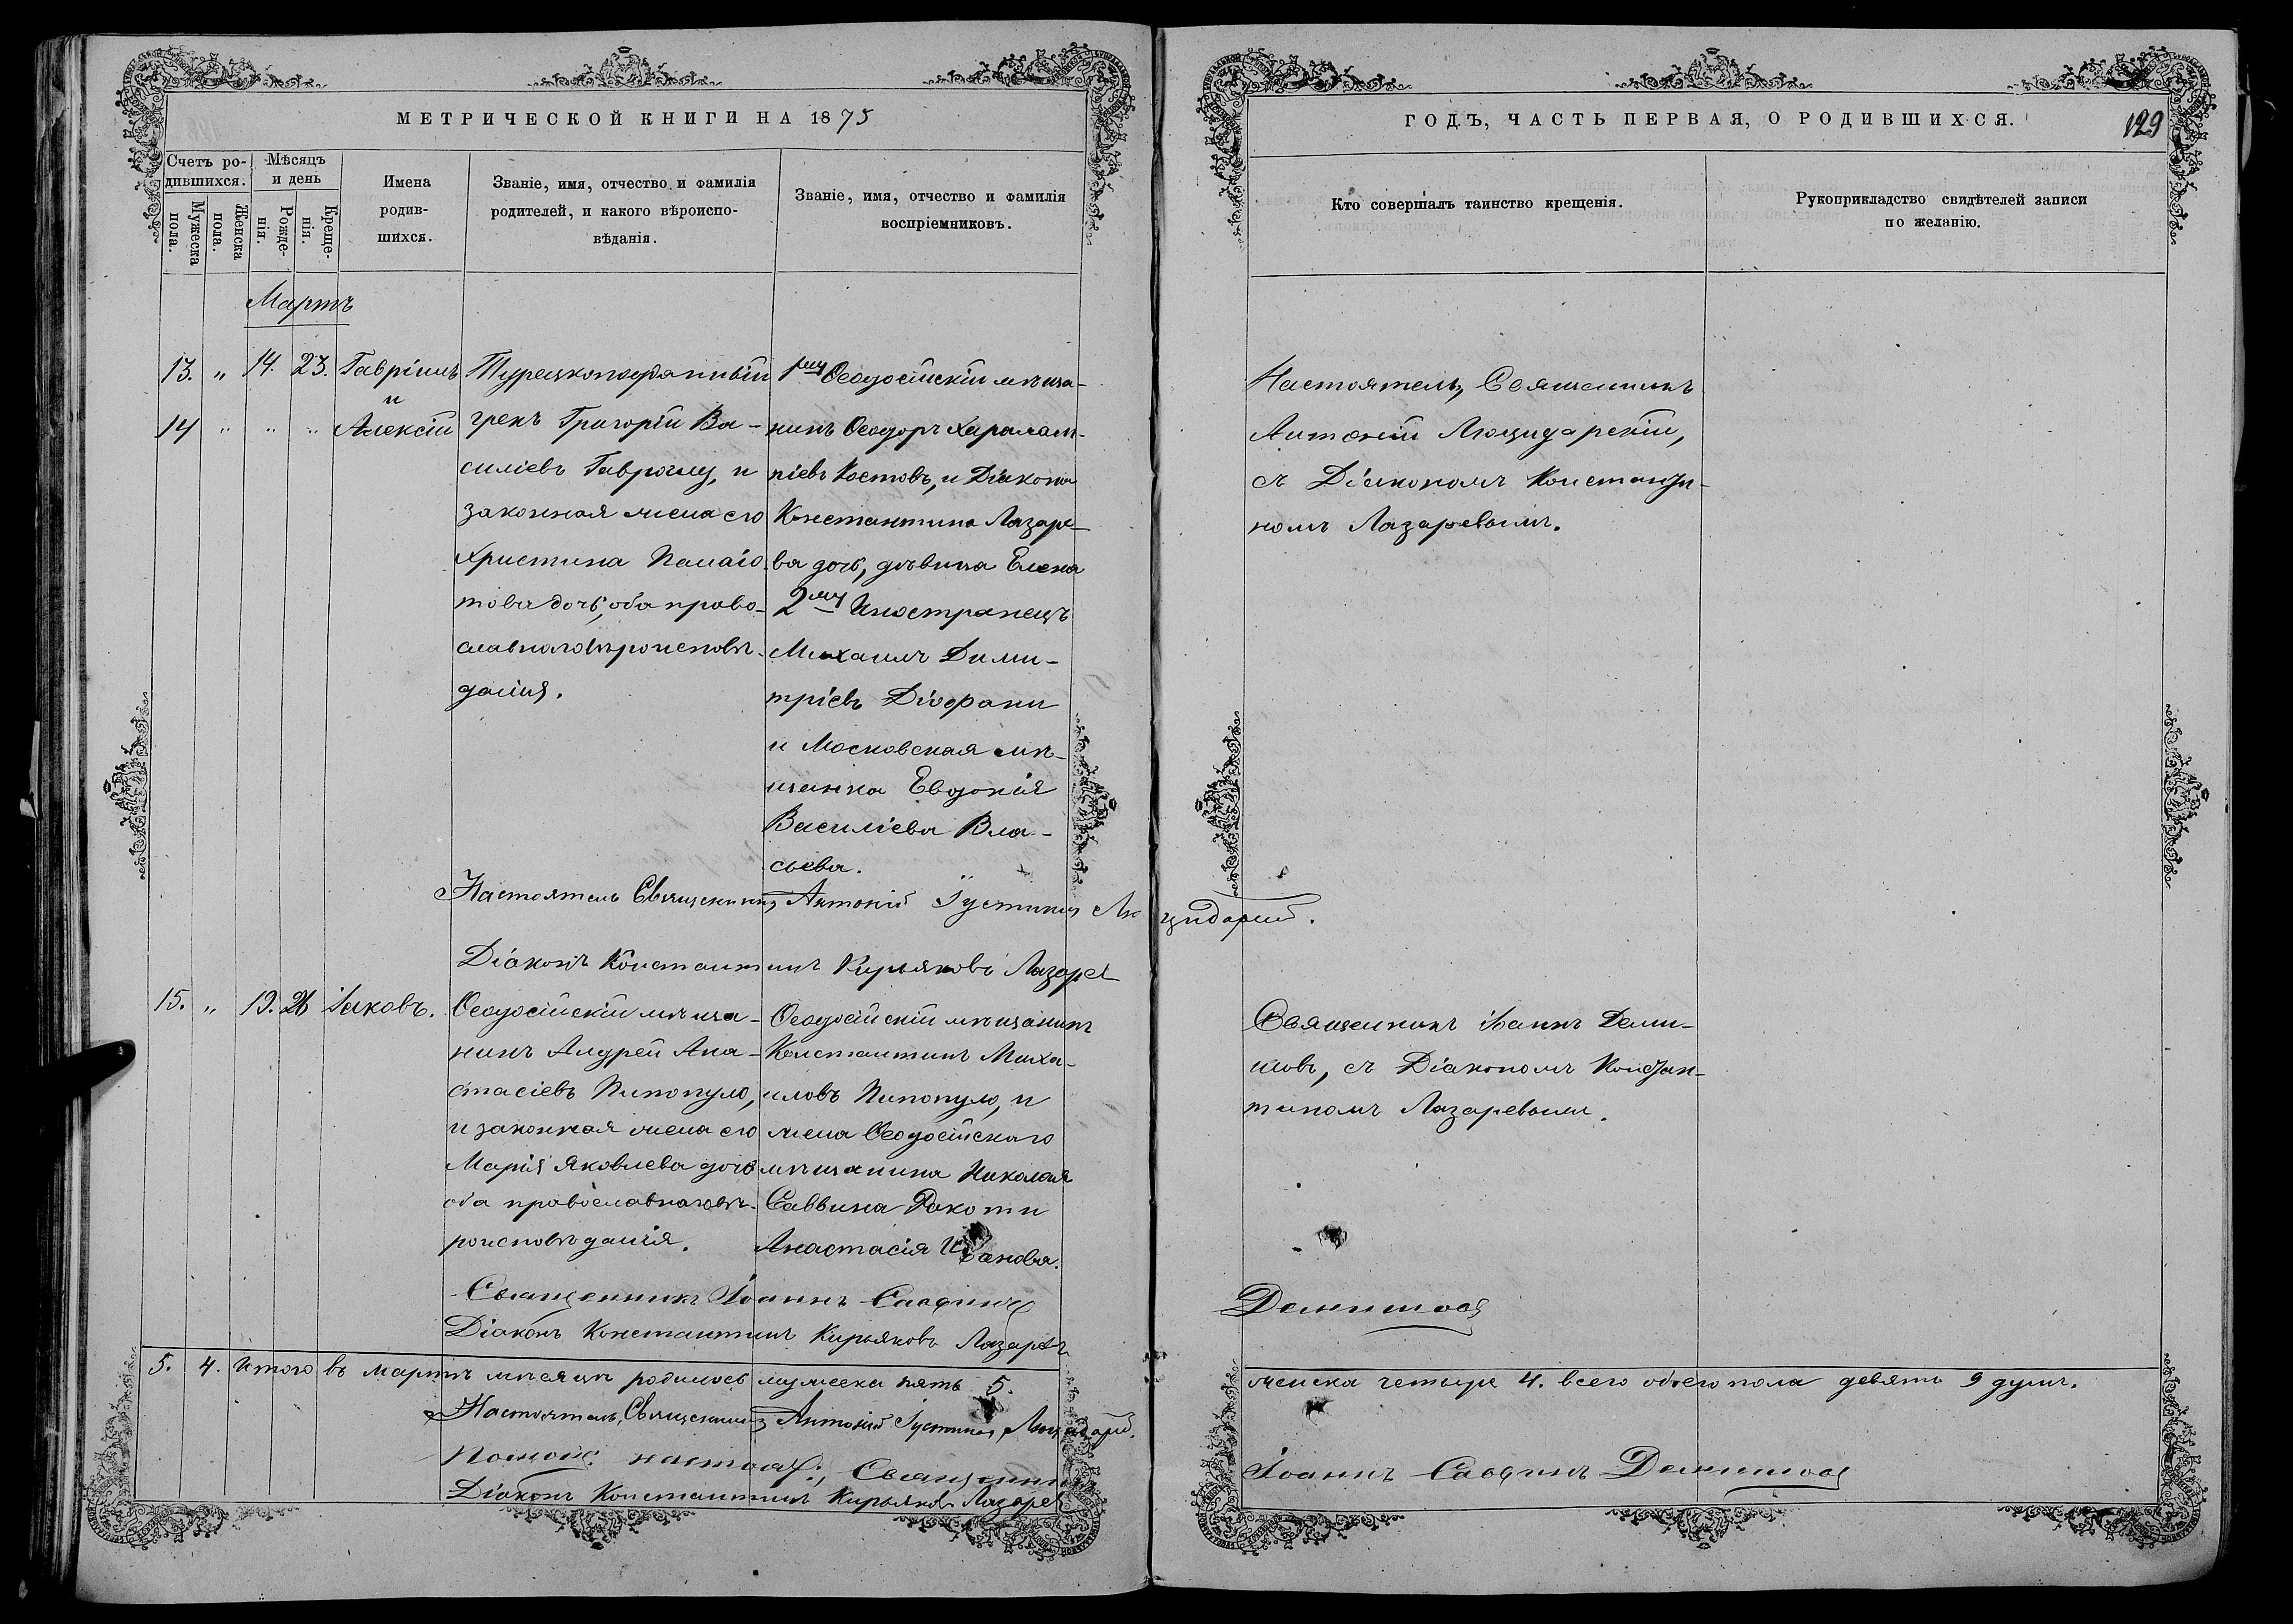 МЕТРИЧЕСКОЙ КНИГИ НА 1875
Счетъ ро-
дившихся.
Мужеска
пола.
Женска
пола.
Мѣсяцъ
и день
Рожде-
нія.
Креще-
нія.
Имена
родив-
шихся.
Званіе, имя, отчество и фамилія
родителей, и какого вѣроиспо-
вѣданія.
Званіе, имя, отчество и фамилія
воспріемниковъ.
Мартъ
13. „ 14. 23. Гавріилъ
и
14 „ „ „ Алексій
Турецкоподданный
грекъ Григорій Ва-
силіевъ и
законная жена его
Христина Панаіо
това дочь, оба право-
славнаго вѣроисповѣ-
данія.
1му Ѳеодосійскій мѣща-
нинъ Ѳеодоръ Харалам-
піевъ Костовъ, и Діакона
Константина Лазаре-
ва дочь, дѣвица Елена
2му Иностранецъ
Михаилъ Дими-
тріевъ Діофани
и Московская мѣ-
щанка Евдокія
Василіева Вла-
сьева.
Настоятель Священникъ Антоній Іустиновъ Люцидарскій.
Діаконъ Константинъ Кирьяковъ Лазарев
15. „ 19. 26 Іаковъ.
Ѳеодосійскій мѣща-
нинъ Андрей Ана-
стасіевъ Пипопуло,
и законная жена его
Марія Яковлева дочь
оба православнаго вѣ-
роисповѣданія.
Ѳеодосійскій мѣщанинъ
Константинъ Миха-
иловъ Пипопуло, и
жена Ѳеодосійскаго
мѣщанина Николая
Саввина
Анастасія Иванова.
Священникъ Іоаннъ Саввинъ
Діаконъ Константинъ Кирьяковъ Лазаревъ
5. 4. Итого въ мартѣ мѣсяцѣ родилось мужеска пять 5.
Настоятель, Священникъ Антоній Іустиновъ Люцидарскій.
Помощ: настоят:, Священникъ
Діаконъ Константинъ Кирьяковъ Лазарев
ГОДЪ, ЧАСТЬ ПЕРВАЯ, О РОДИВШИХСЯ.
129
Кто совершалъ таинство крещенія.
Рукоприкладство свидѣтелей записи
по желанію.
Настоятель, Священникъ
Антоній Люцидарскій,
съ Діакономъ Константи-
номъ Лазаревымъ.
Священникъ Іоаннъ Деми-
шовъ, съ Діакономъ Констан-
тиномъ Лазаревымъ.
Демишовъ
женска четыре 4. всего обоего пола девять 9 душъ.
Іоаннъ Саввинъ Демишовъ